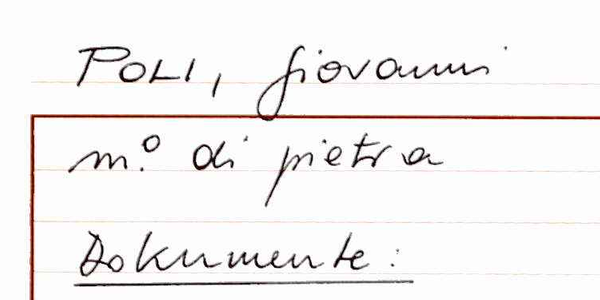 POLI, Giovanni
m.º di pietra
Dokumente: